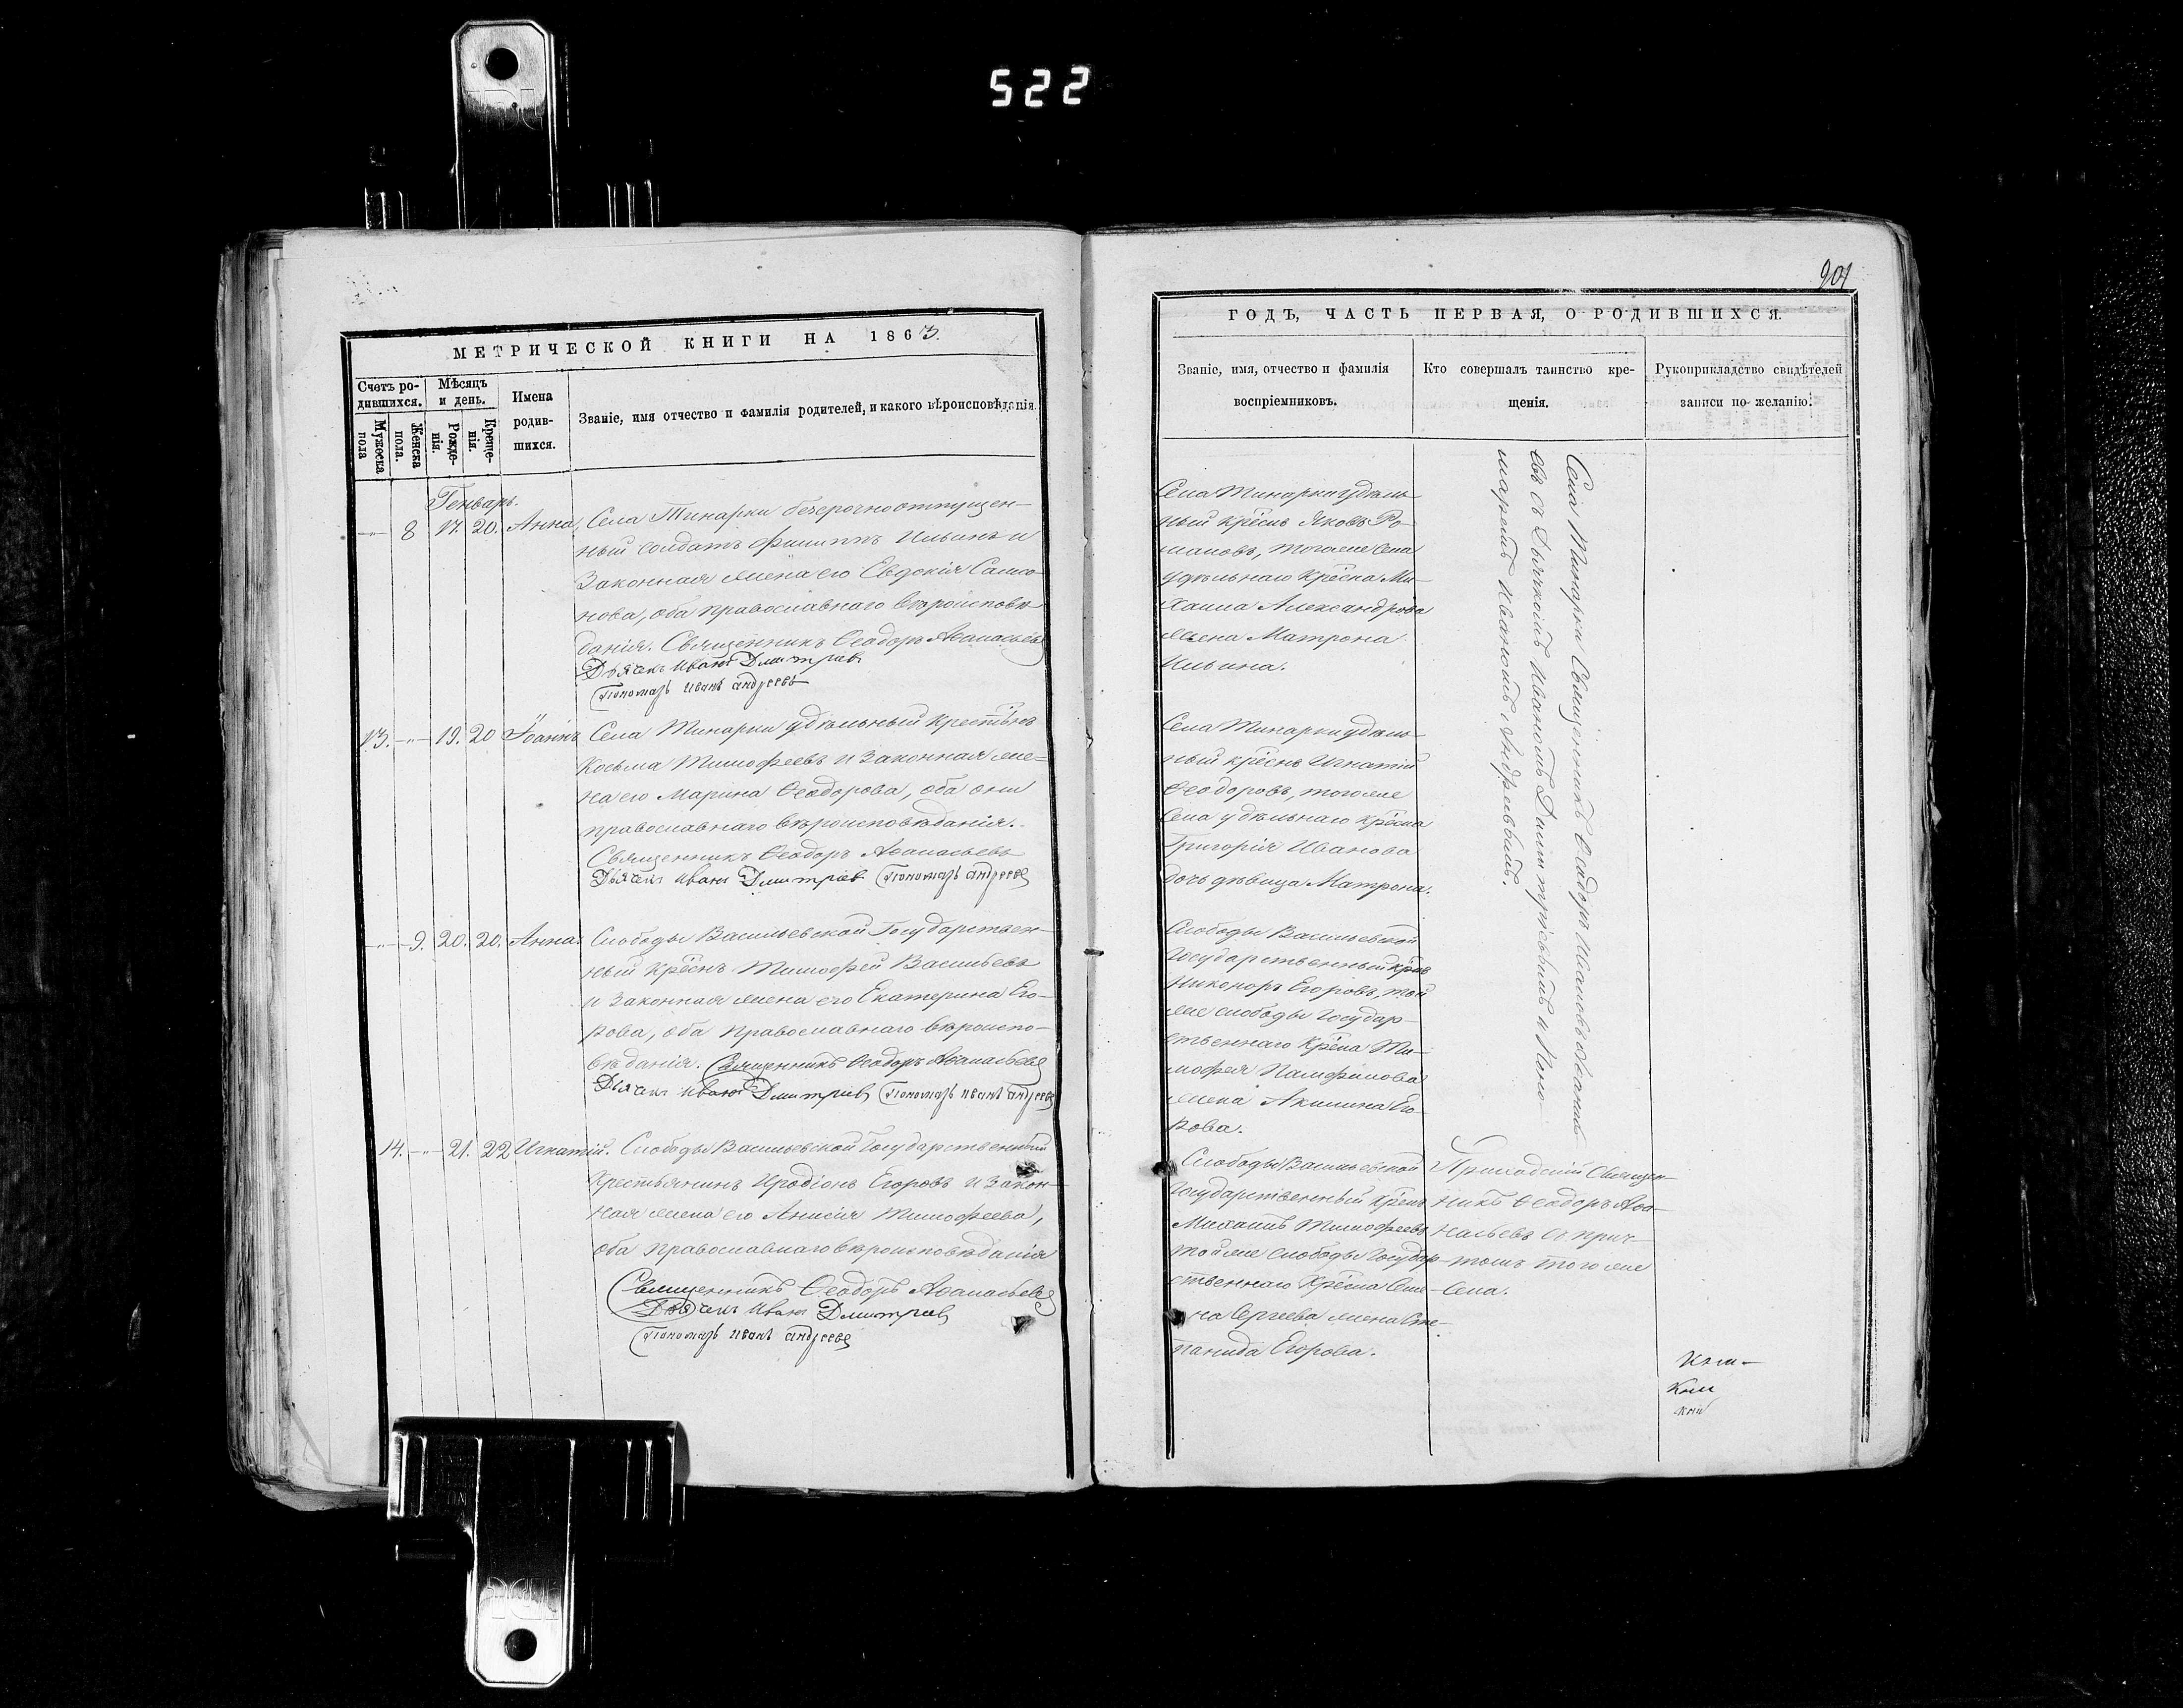 522
901
МЕТРИЧЕСКОЙ КНИГИ НА 1863.
Счетъ ро-
дившихся.
Мужеска
пола
Женска
пола.
Мѣсяцъ
и день.
Рожде-
нія.
Креще-
нія.
Имена
родив-
шихся.
Званіе, имя отчество и фамилія родителей, и какого вѣроисповѣданія.
Генварь.
—„— 8 17. 20. Анна
Села Тинарки безсрочноотпущен-
ный солдатъ Филиппъ Ильинъ и
Законная жена его Евдокія Самсо-
нова, оба православнаго вѣроисповѣ-
данія. Священникъ Ѳеодоръ Аѳанасьевъ
Дьячекъ Иванъ Дмитріев
Пономарь Иванъ Андреевъ
13. —„— 19. 20 Іоаннъ
Села Тинарки удѣльный Крестьнъ
Косьма Тимофеевъ и Законная же-
на его Марина Ѳеодорова, оба они
православнаго вѣроисповѣданія.
Священникъ Ѳеодоръ Аѳанасьевъ
Дьячекъ Иванъ Дмитріев Пономарь Андреев
—„— 9. 20. 20. Анна.
Слободы Васильевской Государствен-
ный Крёснъ Тимофей Васильевъ
и Законная жена его Екатерина Его-
рова, оба Православнаго вѣроиспо-
вѣданія. Священникъ Ѳеодоръ Аѳанасьевъ
Дьячекъ Иванъ Дмитріев Пономарь Иванъ Андреев
14. —„— 21. 22 Игнатій.
Слободы Васильевской Государственный
Крестьянинъ Иродіонъ Егоровъ и Закон-
ная жена его Анисія Тимофеева,
оба Православнаго вѣроисповѣданія
Священникъ Ѳеодоръ Аѳанасьевъ
Дьячекъ Иванъ Дмитріев
Пономарь Иванъ Андреевъ
ГОДЪ, ЧАСТЬ ПЕРВАЯ, О РОДИВШИХСЯ.
Званіе, имя, отчество и фамилія
воспріемниковъ.
Кто совершалъ таинство кре-
щенія.
Рукоприкладство свидѣтелей
записи по желанію.
Села Тинарки удѣль-
ный крёснъ Яковъ Ро-
мановъ, тогоже Села
удѣльнаго Крёсна Ми-
хаила Александрова
жена Матрона
Ильина.
Села Тинарки удѣль-
ный крёснъ Игнатій
Ѳеодоровъ, тогоже
Села удѣльнаго Крёсна
Григорія Иванова
дочь дѣвица Матрона.
Слободы Васильевской
Государственный
Никоноръ Егоровъ, той
же слободы Государ-
ственнаго Крёсна Ти-
мофея Памфилова
жена Акилина Его-
рова.
Слободы Васильевской
Государственный Крёснъ
Михаилъ Тимофеевъ
той же слободы Государ-
ственнаго Крёсна Семе-
на Сергеева жена Сте-
панида Егорова.
Села Тинарки Священникъ Ѳеодоръ
евъ съ Дьячкомъ Иваномъ Дмитріевымъ и Поно-
маремъ Иваномъ Андреевымъ.
Приходскій Священ-
никъ Ѳеодоръ Аѳа-
насьевъ съ прич-
томъ того же
Села.